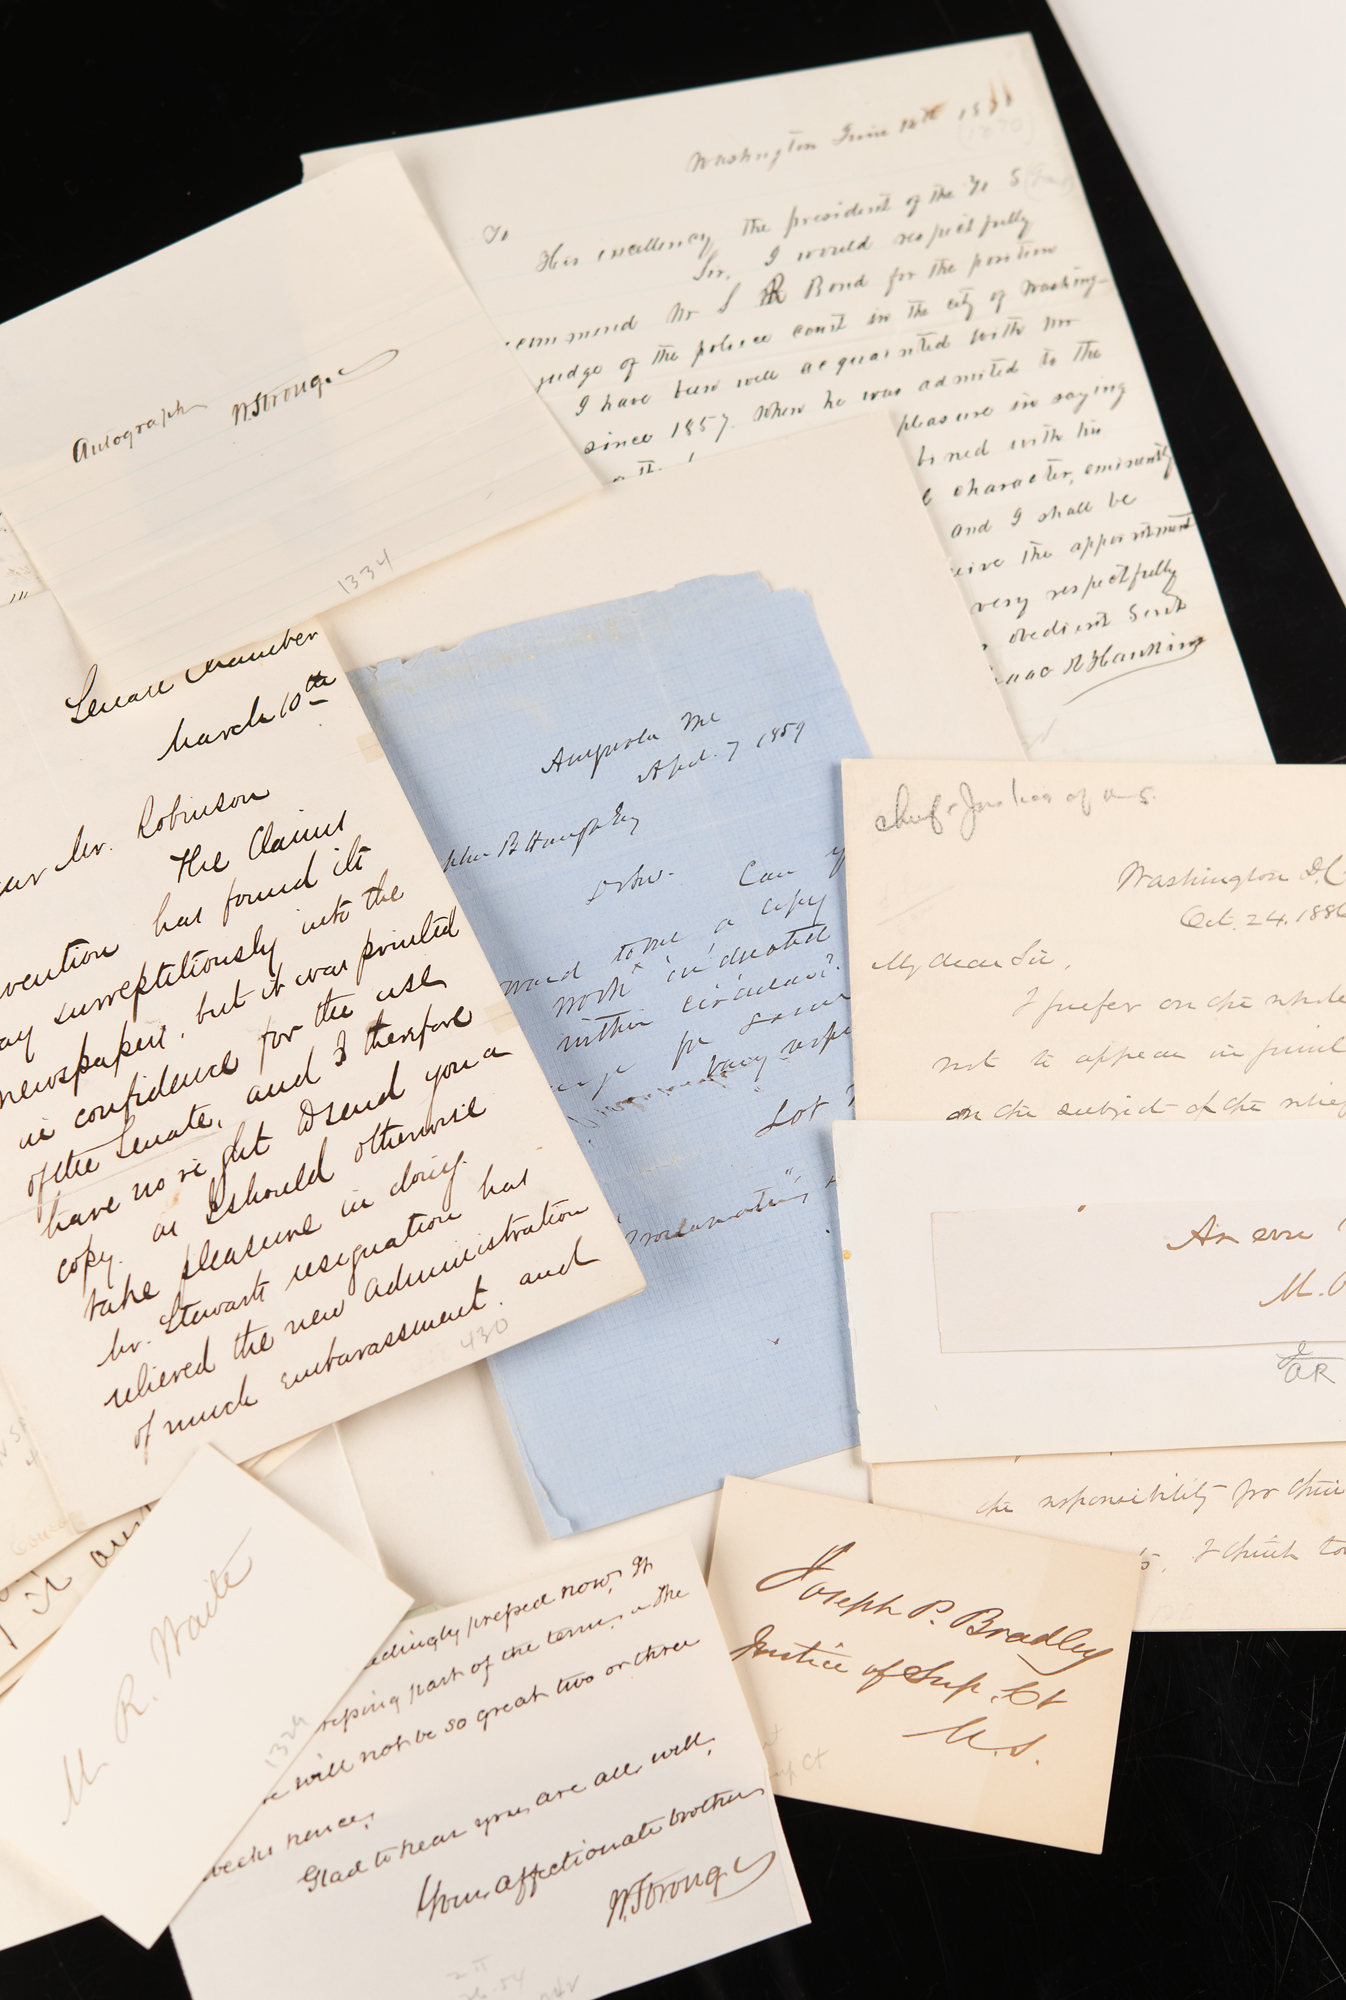 Washington June 18th 18
(1870)
To
His excellency the president of the U S
Sir, I would respectfully
commend Mr S R Bond for the position
judge of the police court in the city of Washing-
I have been well acquainted with Mr
since 1857. When he was admitted to the
pleasure in saying
bined with his
character, eminently
and I shall be
ceive the appointment
very respectfully
obedient Servt
Hawkins
Autograph W. Strong
1334
Senate Chamber
March 10th
ear Mr. Robinson
The Claims
vention has found its
ay surreptitiously into the
newspapers, but it was printed
in confidence for the use
of the Senate, and I therefore
have no right to send you a
copy. as I should otherwise
take pleasure in doing.
Mr. Stewarts resignation has
relieved the new administration
of much embarassment. and
430
Augusta Me
April. 7 1859
B Hough Esq
Dr Sir. Can y
ward to me a copy
work indicated
within circular?
for same
very respe
Lot
Chief Justice of U.S.
Washington D.C.
Oct. 24. 188
My dear Sir,
I prefer on the whole
not to appear in print
on the subject of the
M.
the responsibility for their
I think
M R. Waite
1329
edingly pressed now. It
part of the term, & the
will not be so great two or three
weeks hence.
Glad to hear you are all well.
Your affectionate brother
W. Strong
Joseph P. Bradley
Justice of Sup. Ct
U.S.